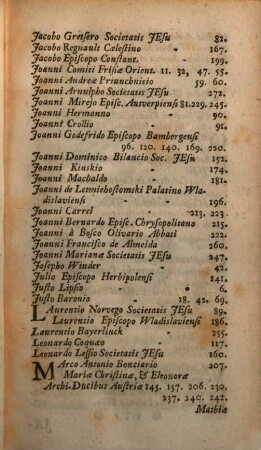 Jacobo Gretsero Societatis JEsu 82.
Jacobo Regnault Cælestino 167.
Jacobo Episcopo Constant. 199.
Joanni Comiti Frisiæ Orient. 11. 32, 47. 55.
Joanni Andreæ 59. 60.
Joanni Arnulpho Societatis JEsu 272.
Joanni Mirejo Episc. Antverpiensi 81. 229. 245.
Joanni Hermanno 90.
Joanni Crollio 91.
Joanni Godefrido Episcopo Bambergensi
96. 120. 140. 169. 220.
Joanni Dominico Bilancio Soc. JEsu 152.
Joanni Kinskio 174.
Joanni Machaldo 181.
Joanni de Lenniehostomski Palatino Wla-
dislaviensi 196.
Joanni Carrel 213. 223.
Joanni Bernardo Episc. Chrysopolitano 215.
Joanni à Bosco Olivario Abbati 222.
Joanni Francisco de Almeida 260.
Joanni Marianæ Societatis JEsu 247.
Josepho Winder 42.
Julio Episcopo Herbipolensi 141.
Justo Lipsio 6.
Justo Baronio 18. 42. 69.
LAurentio Norvego Societatis JEsu 89.
Laurentio Episcopo Wladislaviensi 186.
Laurentio Bayerlinck 255.
Leonardo Coquæo 117.
Leonardo Lessio Societatis JEsu 160.
MArco Antonio Bonciario 207.
Mariæ Christinæ, & Eleonoræ
Archi-Ducibus Austriæ 145. 157. 206. 230.
237. 240. 242.
Mathiæ